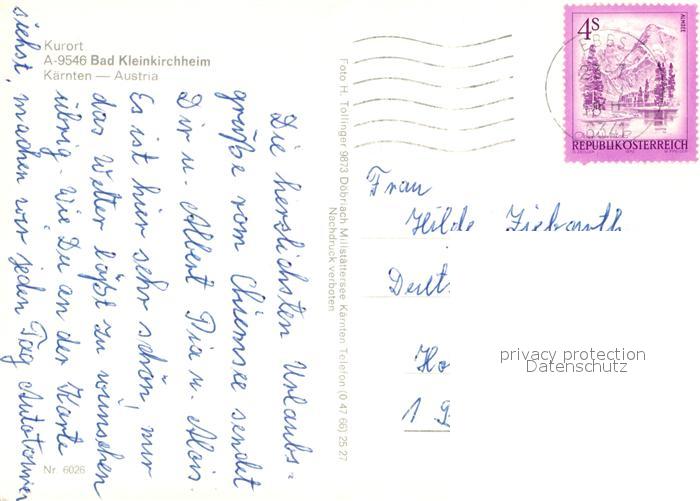 Kurort
A-9546 Bad Kleinkirchheim
Kärnten — Austria
Die herzlichsten Urlaubs-
grüße vom Chiemsee sendet
Dir u. Albert Pia u. Alois.
Es ist hier sehr schön, nur
das Wetter läßt zu wünschen
übrig. Wie Du an der Karte
siehst, machen wir jeden Tag Autotouren
Nr. 6026
Foto H. Tollinger 9873 Döbriach Millstättersee Kärnten Telefon (0 47 66) 25 27
Nachdruck verboten
4S
ALMSEE
EBBS
6341
REPUBLIK ÖSTERREICH
Frau
Hilde
Deut
Ho
1 9
privacy protection
Datenschutz